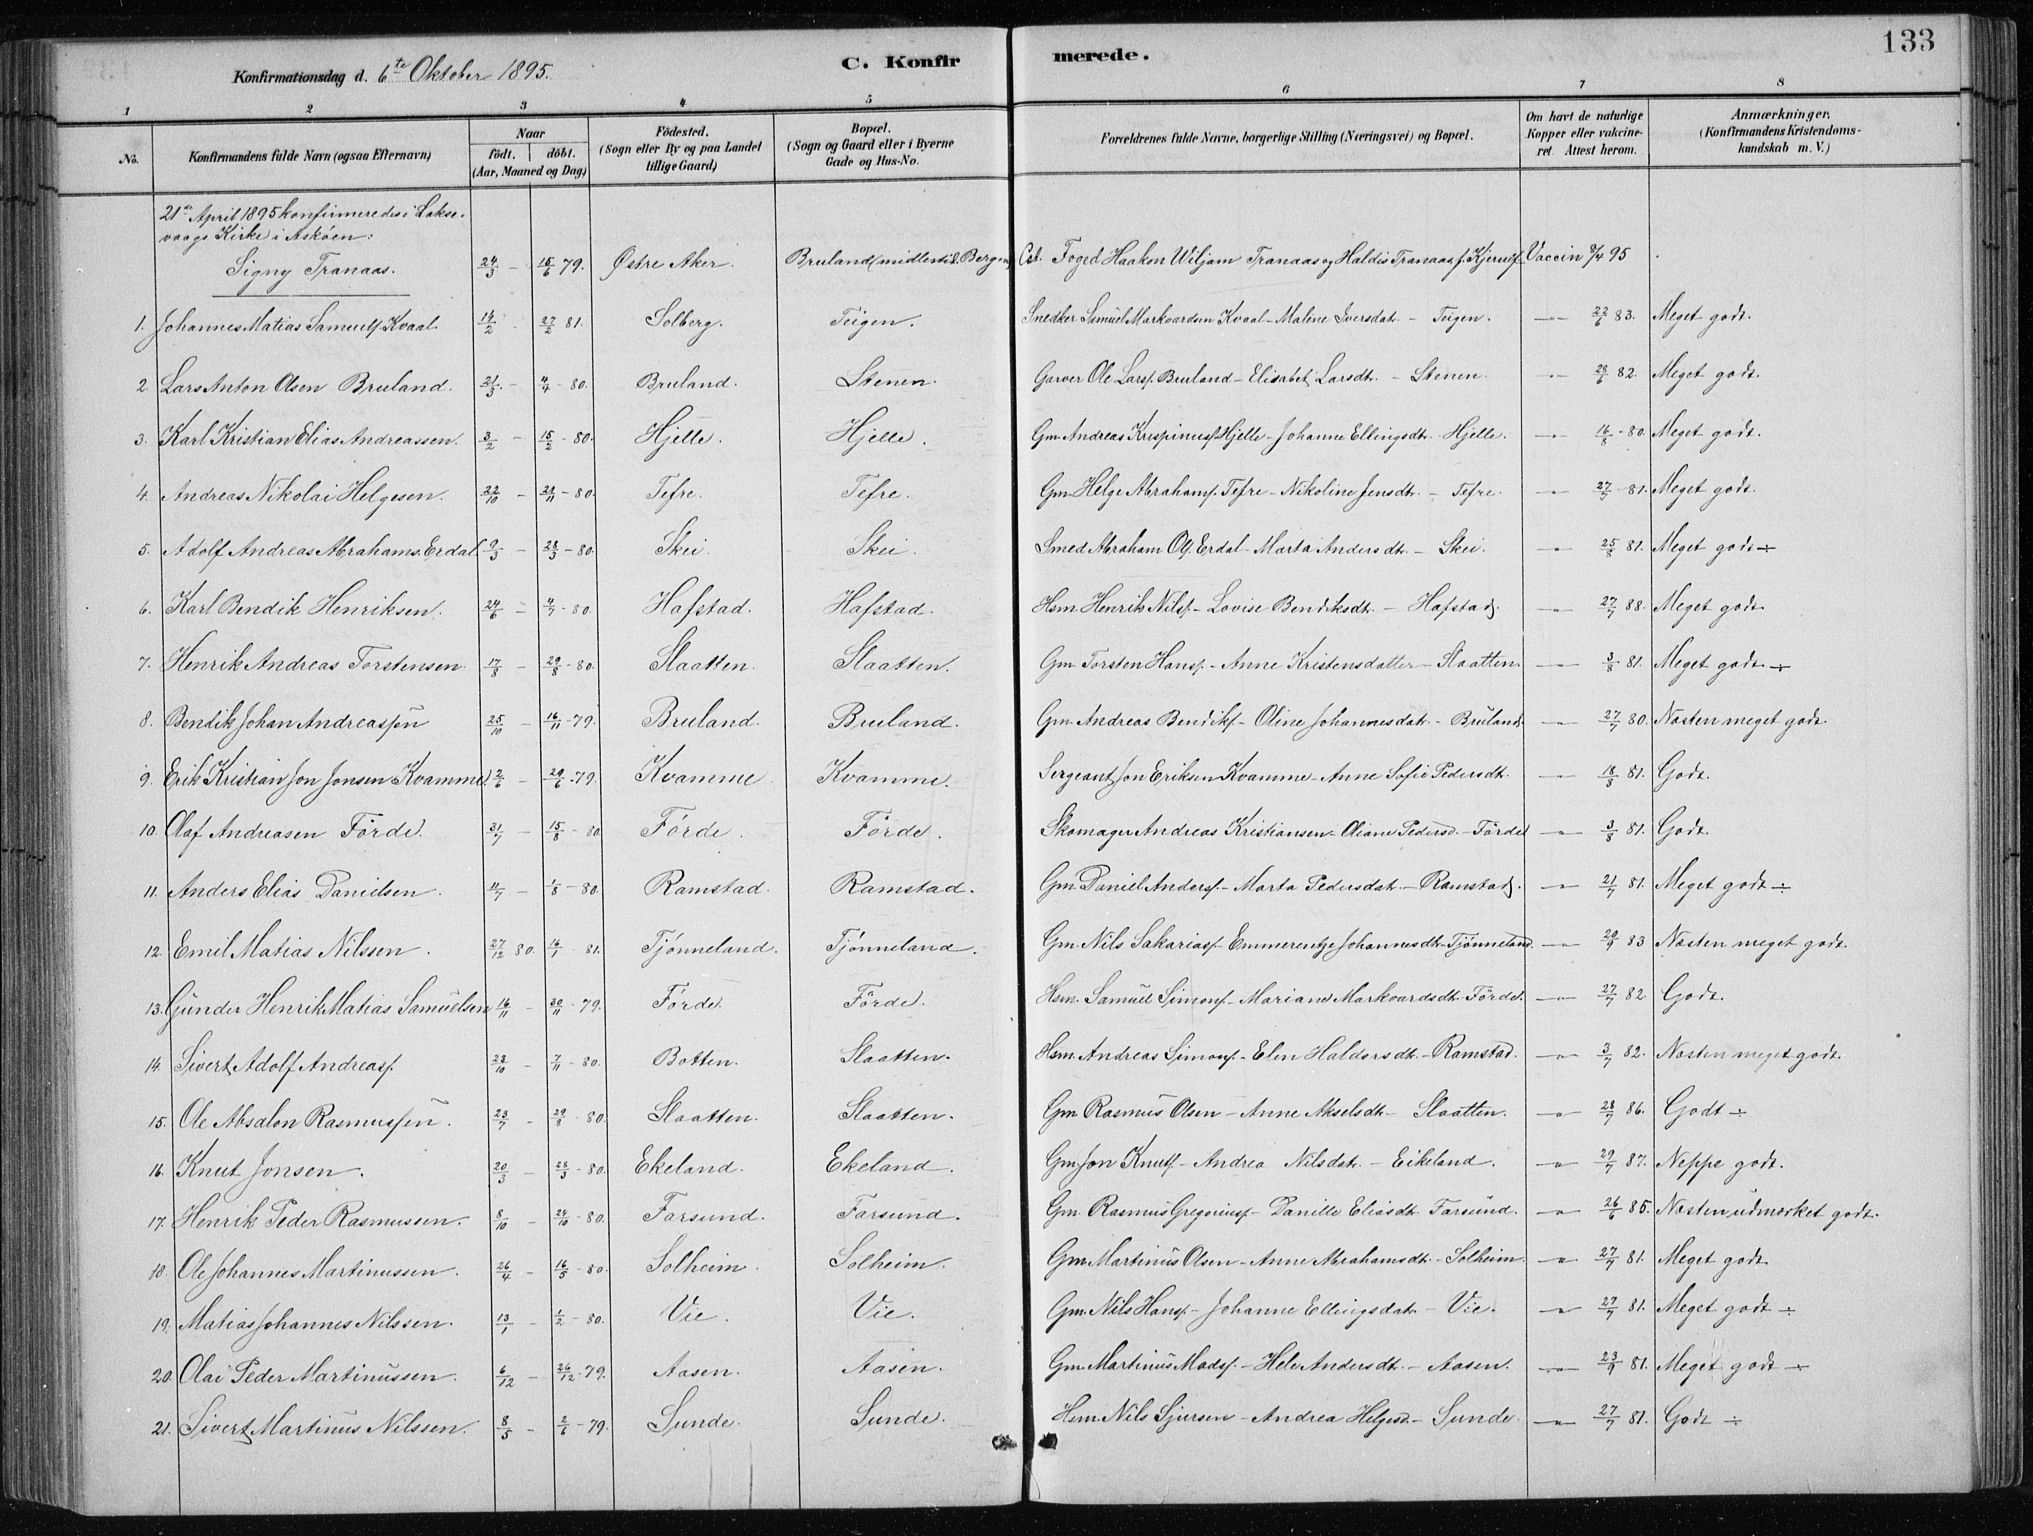 133
Konfirmationsdag d. 6te Oktober 1895. C. Konfirmerede.
1 2 3 4 5 6 7 8
No. Konfirmandens fulde Navn (ogsaa Efternavn) Naar født. døbt. (Aar, Maaned og Dag) Födested. (Sogn eller By og paa Landet tillige Gaard) Bopæl. (Sogn og Gaard eller i Byerne Gade og Hus-No. Forældrenes fulde Navne, borgerlige Stilling (Næringsvei) og Bopæl. Om havt de naturlige Kopper eller vaccineret. Attest herom. Anmærkninger. (Konfirmandens Kristendomskundskab m. V.)
21de April 1895 konfirmeredes i Lakse-
vaags Kirke i Askøen:
Signy Tranaas. 24/3 - 15/6 79. Østre Aker. Bruland (midlertid. Bergen) Cst. Foged Haakon Wiljam Tranaas og Haldis Tranaas f. Kjerulf Vaccin 8/4 95
1. Johannes Matias Samuelss. Kvaal 14/2 - 27/2 81. Solberg. Teigen. Snedker Samuel Markvardsen Kvaal - Malene Iversdat. - Teigen. -"- 22/6 83. Meget godt.
2. Lars Anton Olsen Bruland. 21/3 - 4/4 - 80. Bruland. Stenen. Garver Ole Larss. Bruland - Elisabet Larsdt. - Stenen -"- 28/6 82. Meget godt.
3. Karl Kristian Elias Andreassen. 3/2 - 15/2 - 80. Hjelle. Hjelle. Gm. Andreas Krispinuss. Hjelle - Johanne Ellingsdt. Hjelle. -"- 16/8 - 80. Meget godt.
4. Andreas Nikolai Helgesen. 22/10 - 28/11 - 80. Tefre. Tefre. Gm. Helge Abrahams. Tefre - Nikoline Jensdt. - Tefre. -"- 27/7 - 81. Meget godt.
5. Adolf Andreas Abrahams. Erdal 9/3 - 28/3 - 80. Skei. Skei. Smed Abraham Ols. Erdal - Marta Andersdt. - Skei. -"- 25/8 81. Meget godt ÷
6. Karl Bendik Henriksen. 24/6 - 4/7 - 80. Hafstad. Hafstad. Hsm. Henrik Nilss. - Lovise Bendiksdt. - Hafstad. -"- 27/7 88. Meget godt.
7. Henrik Andreas Torstensen 17/8 - 29/8 - 80. Slaatten. Slaatten. Gm. Torsten Hanss. - Anne Kristensdatter - Slaatten. -"- 3/8 81. Meget godt ÷
8. Bendik Johan Andreassen 25/10 - 16/11 - 79. Bruland. Bruland. Gm. Andreas Bendikss. - Oline Johannesdat. - Bruland. -"- 27/7 80. Næsten meget godt.
9. Erik Kristian Jon Jonsen Kvamme. 2/6 - 29/6 - 79. Kvamme. Kvamme. Sergeant Jon Eriksen Kvamme - Anne Sofie Pedersdt. -"- 18/8 81. Godt.
10. Olaf Andreasen Förde. 31/7 - 15/8 - 80. Förde. Förde. Skomager Andreas Kristiansen - Oliane Pedersd. - Förde. -"- 3/8 81. Godt.
11. Anders Elias Danielsen. 11/7 - 1/8 - 80. Ramstad. Ramstad. Gm. Daniel Anderss. - Marta Pedersdat. - Ramstad. -"- 21/7 81. Meget godt ÷
12. Emil Matias Nilssen. 27/12 80. 16/1 - 81. Tjönneland. Tjönneland. Gm. Nils Sakariass. - Emmerentze Johannesdt. - Tjönneland. -"- 20/9 83 Næsten meget godt.
13. Gunder Henrik Matias Samuelsen 16/11 - 30/11 - 79. Förde. Förde. Hsm. Samuel Simons. - Mariane Markvardsdt. Förde. -"- 27/7 82. Godt.
14. Sivert Adolf Andreass. 23/10 - 7/11 - 80. Botten. Slaatten. Hsm. Andreas Simons. - Elen Haldorsdt. - Ramstad. -"- 3/7 82. Næsten meget godt.
15. Ole Absalon Rasmussen. 23/7 - 29/8 - 80. Slaatten. Slaatten. Gm. Rasmus Olsen - Anne Akselsdt. - Slaatten. -"- 28/7 86. Godt ÷
16. Knut Jonsen. 20/3 - 28/3 - 80. Ekeland. Ekeland. Gm. Jon Knuts. - Andrea Nilsdat. - Eikeland. -"- 29/7 87. Neppe godt.
17. Henrik Peder Rasmussen. 8/10 - 24/10 - 80. Farsund. Farsund. Gm. Rasmus Gregoriuss. - Danille Eliasdt. Farsund. -"- 26/6 85. Næsten udmærket godt.
18. Ole Johannes Martinussen. 26/4 - 16/5 - 80. Solheim. Solheim. Gm. Martinus Olsen - Anne Abrahamsdt. - Solheim. -"- 27/7 81. Meget godt.
19. Matias Johannes Nilssen. 13/1 - 1/2 - 80. Vie. Vie. Gm. Nils Hanss. - Johanne Ellingsdat. - Vie. -"- 27/7 81. Meget godt ÷
20. Olai Peder Martinussen. 6/12 - 26/12 - 79. Aasen. Aasen. Gm. Martinus Madss. - Hele Andersdt. - Aasen. -"- 23/9 81. Meget godt ÷
21. Sivert Martinus Nilssen. 8/5 - 2/6 - 79. Sunde. Sunde. Hsm. Nils Sjursen - Andrea Helgesd. - Sunde. -"- 27/7 81. Godt ÷